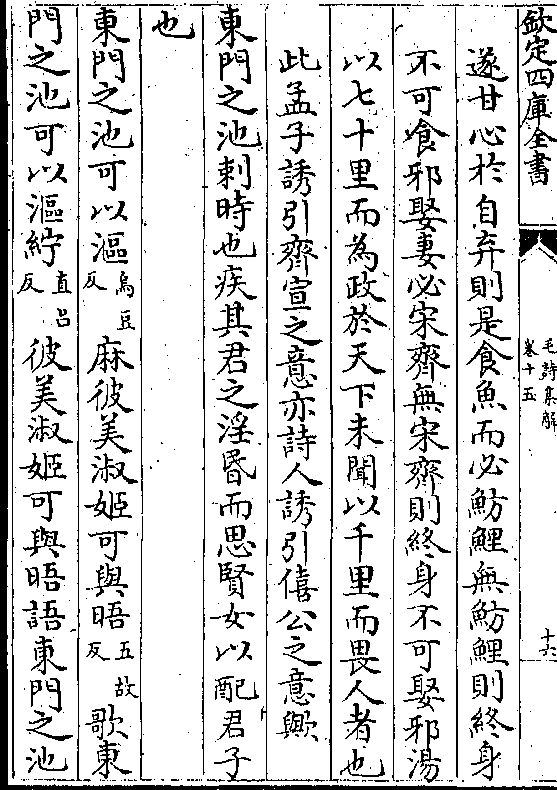 欽定四庫全書
毛詩集解
卷十五
十六
遂甘心於自弃則是食魚而必魴鯉無魴鯉則終身
不可飡邪娶妻必宋齊無宋齊則終身不可娶邪湯
以七十里而為政於天下未聞以千里而畏人者也
此孟子誘引齊宣之意亦詩人誘引僖公之意歟
東門之池刺時也疾其君之淫昬而思賢女以配君子
也
東門之池可以漚烏豆反麻彼美淑姬可與晤五故反歌東
門之池可以漚紵直呂反彼美淑姬可與晤語東門之池